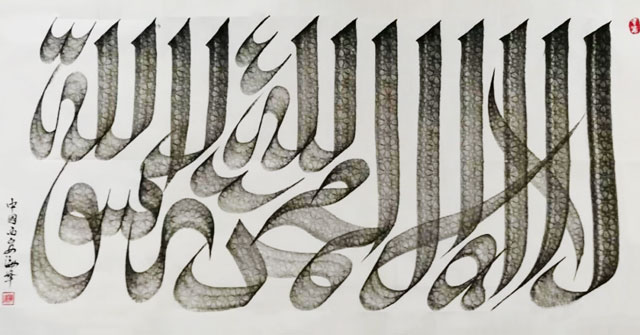 لا إله إلا الله محمد رسول الله
中国西安